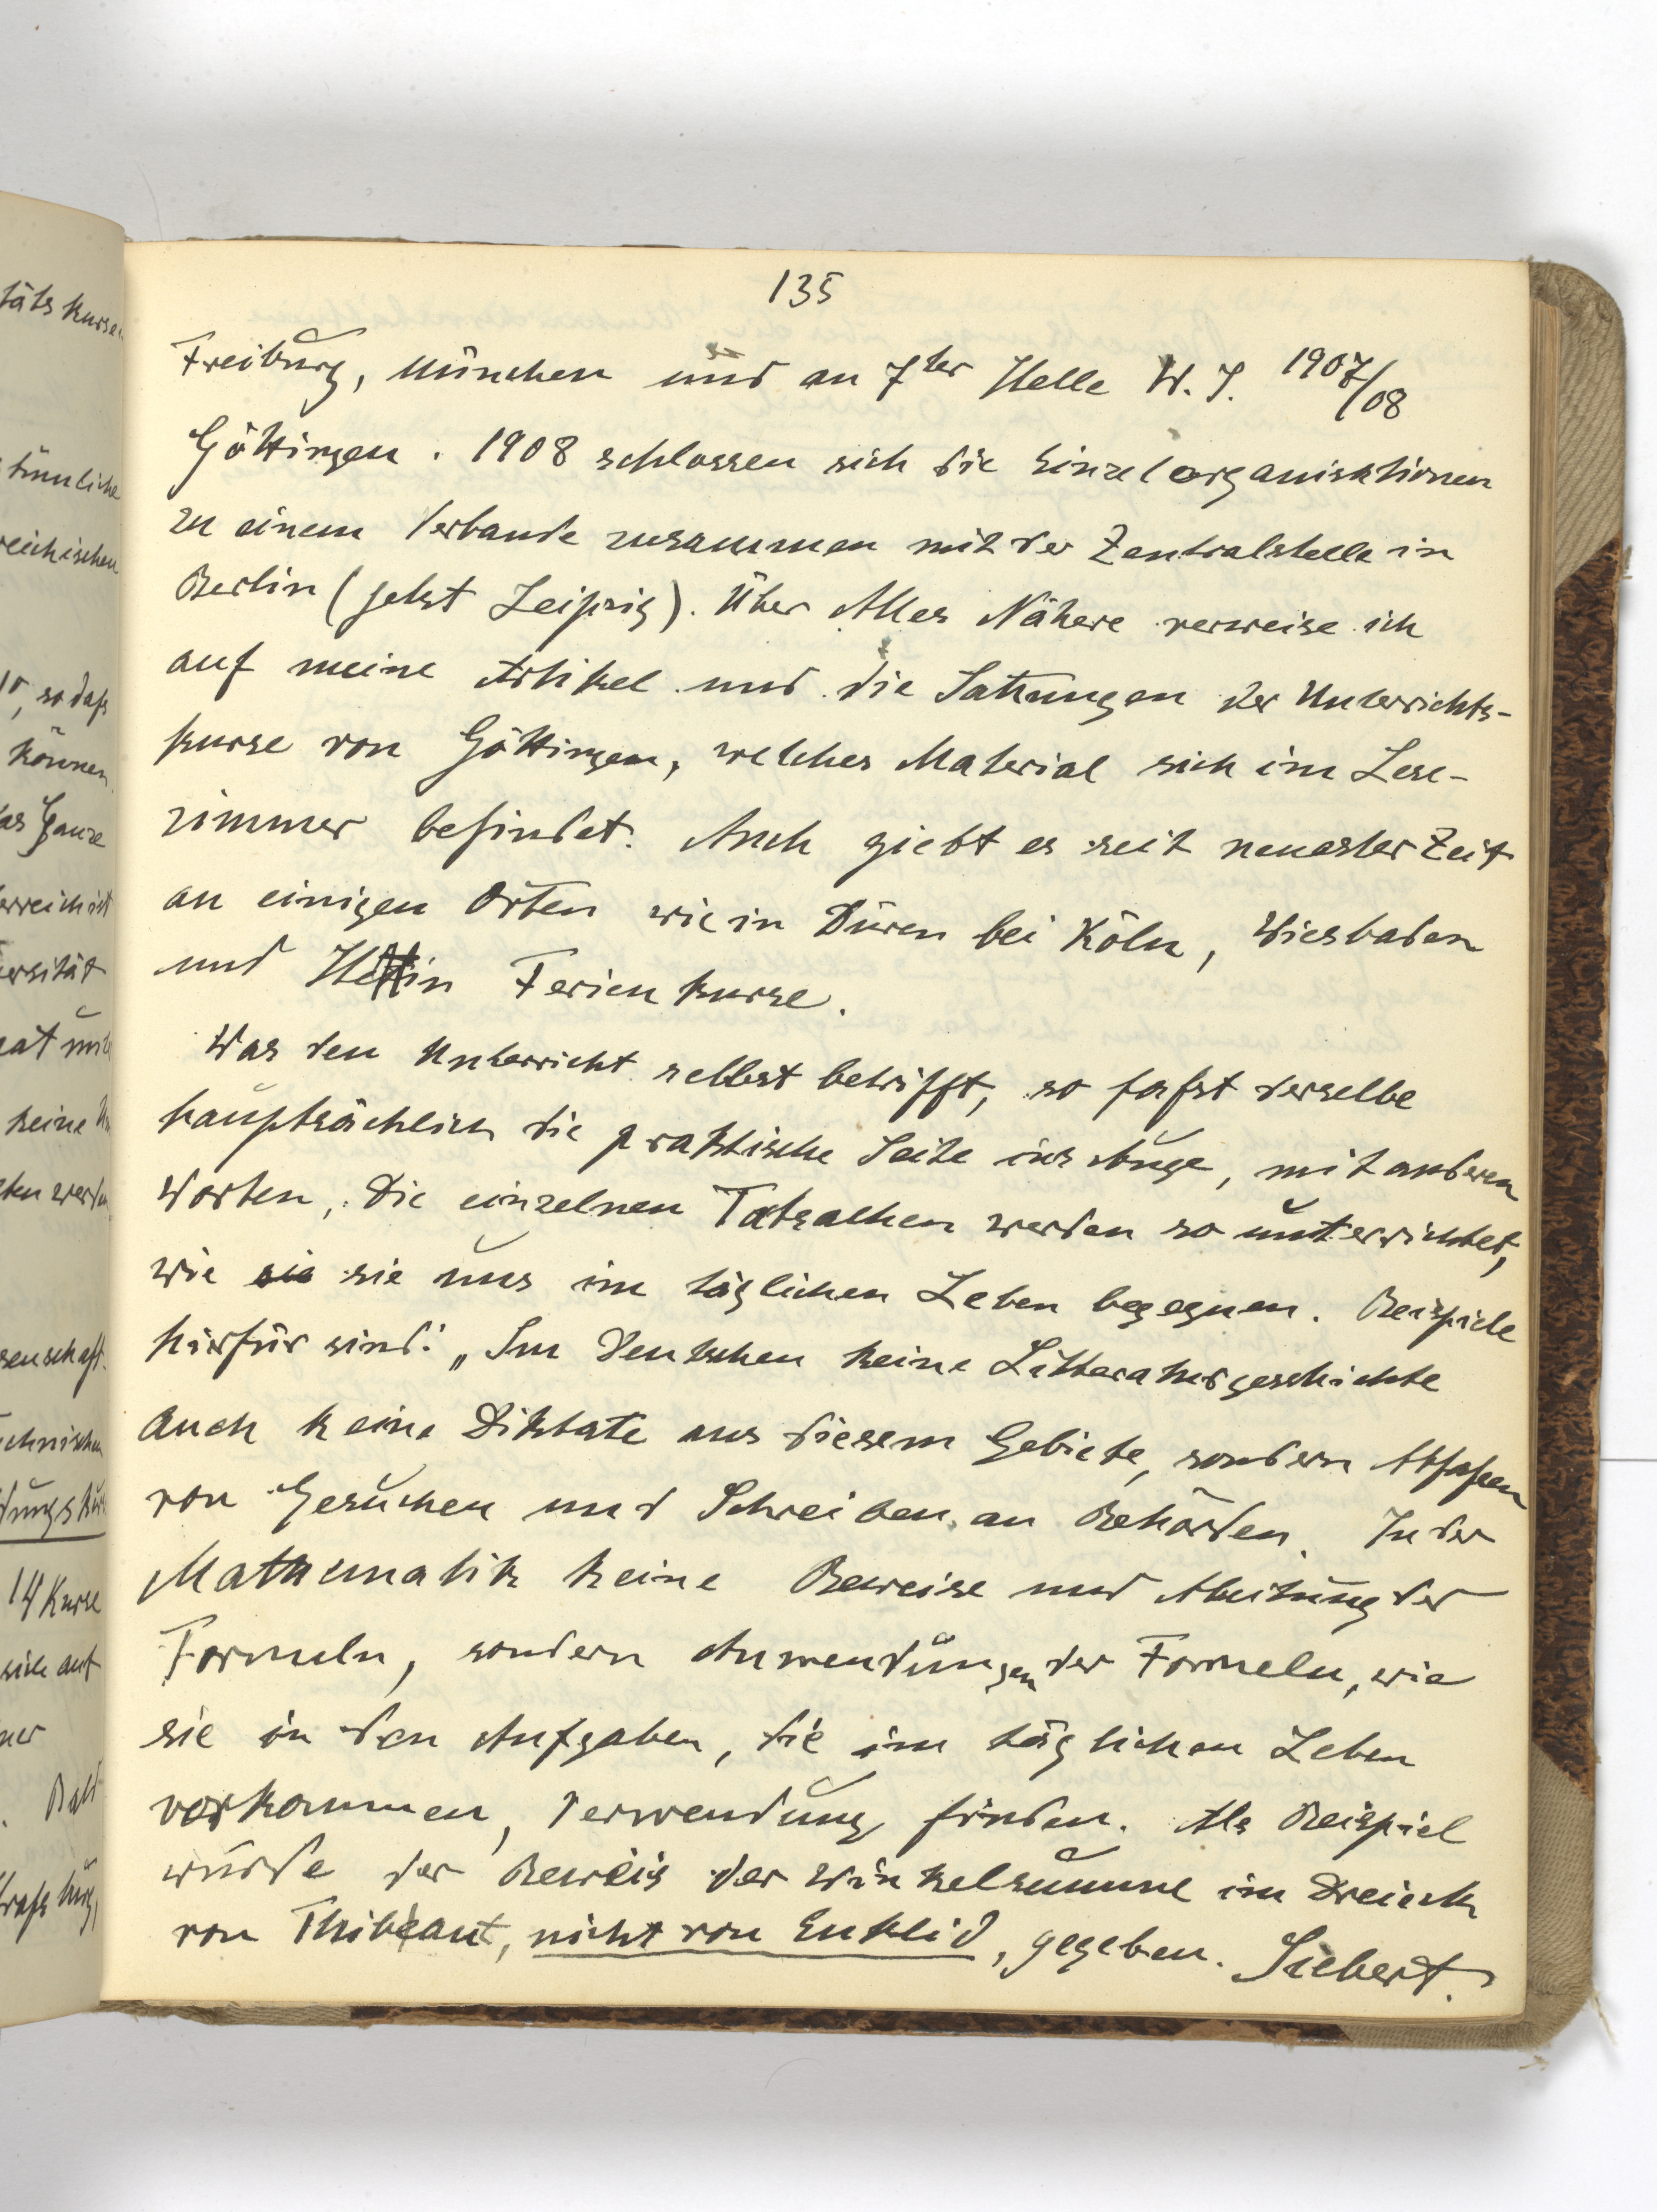 135
Freiburg, München und an 7ter Stelle W.S. 1907/08
Göttingen. 1908 schlossen sich die Einzelorganisationen
zu einem Verbande zusammen mit der Zentralstelle in
Berlin (jetzt Leipzig). Über Alles Nähere verweise ich
auf meine Artikel und die Satzungen der Unterrichts-
kurse von Göttingen, welches Material sich im Lese-
zimmer befindet. Auch giebt es seit neuester Zeit
an einigen Orten wie in Düren bei Köln, Wiesbaden
und Stettin Ferienkurse.
Was den Unterricht selbst betrifft, so faßt derselbe
hauptsächlich die praktische Seite ins Auge, mit anderen
Worten, die einzelnen Tatsachen werden so unterrichtet,
wie sie sie uns im täglichen Leben begegnen. Beispiele
hierfür sind: „Im Deutschen keine Litteraturgeschichte
auch keine Diktate aus diesem Gebiete, sondern Abfaßen
von Gesuchen und Schreiben an Behörden. In der
Mathematik keine Beweise und Ableitung der
Formeln, sondern Anwendungen der Formeln, wie
sie in den Aufgaben, die im täglichen Leben
vorkommen, Verwendung finden. Als Beispiel
würde der Beweis der Winkelsumme im Dreieck
von Thibaut, nicht von Euklid, gegeben. Siebert.
täts kurse
tümliche
reichischen
so daß
können
Ganze
ersität
keine
senschaft.
14 Kurse
sich auf